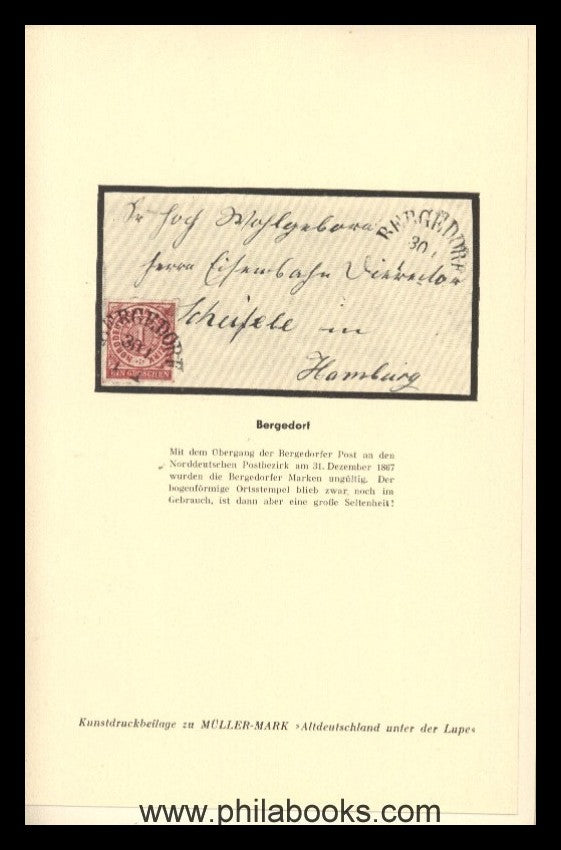 Sr hoch Wohlgeboren
BERGEDORF
30
Herrn Eisenbahn Director
Scheifele in
Hamburg
BERGEDORF
30 1
EIN GROSCHEN
Bergedorf
Mit dem Übergang der Bergedorfer Post an den
Norddeutschen Postbezirk am 31. Dezember 1867
wurden die Bergedorfer Marken ungültig. Der
bogenförmige Ortsstempel blieb zwar noch im
Gebrauch, ist dann aber eine große Seltenheit!
Kunstdruckbeilage zu MÜLLER-MARK ›Altdeutschland unter der Lupe‹
www.philabooks.com